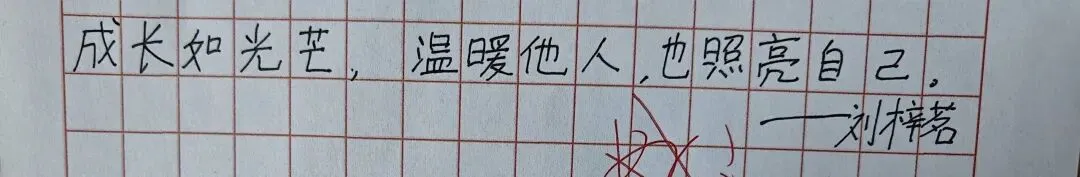 成长如光芒，温暖他人，也照亮自己。
——刘梓茗